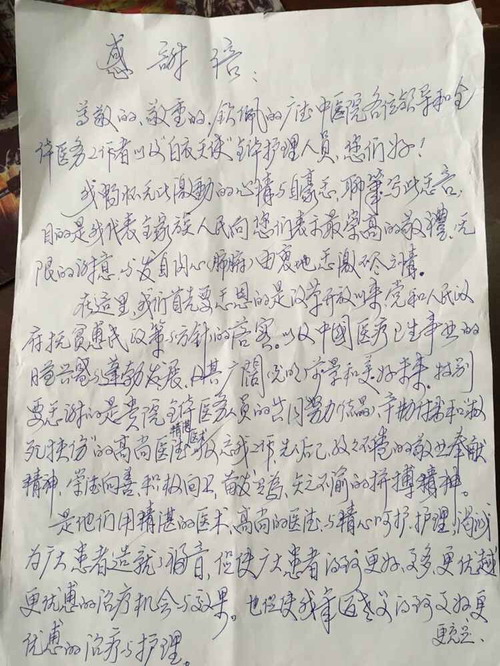 感謝信:
尊敬的、敬重的、钦佩的广德中医院各位领导和全
体医务工作者以及"白衣天使"全体护理人员,您们好!
我怀无比激动的心情与自豪感,聊笔写此
目的是我代表全家族人民向您们表示最崇高的敬禮,无
限的谢意,与发自内心(肺腑)由衷地感激不尽之情。
在这里,我们首先要感恩的是改革开放以来党和人民政
府扶贫惠民政策与方针的落实。以及中國医疗卫生事业的
日益兴盛与蓬勃发展,及其广闊的前景和美好未来。特别
要感谢的是贵院全体医务人员的共同努力
死扶伤"的高尚医德 精湛医术 工作先 的敬业奉献
精神,学 向善积极向上,奋发 ,矢志不渝的拼搏精神。
是他们用精湛的医术、高尚的医德与精心呵护、护理,竭诚
为广大患者造就了福音,促使广大患者得到更好、更多、更优越
更优惠的治疗机会与效果。也促使我年迈老父得到更好、更
优惠的治疗与护理。